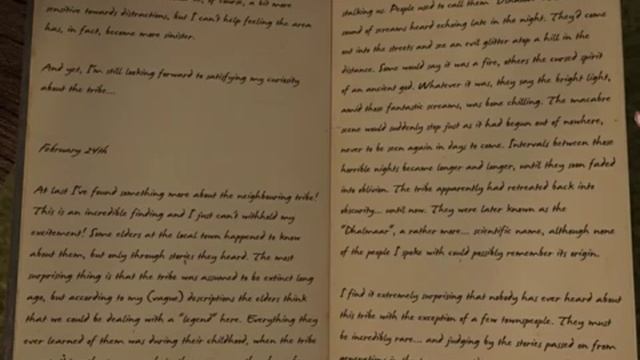 sensitive towards distractions, but I can't help feeling the area
has, in fact, become more sinister.
And yet, I'm still looking forward to satisfying my curiosity
about the tribe...
February 24th
At last I've found something more about the neighbouring tribe!
This is an incredible finding and I just can't withhold my
excitement! Some elders at the local town happened to know
about them, but only through stories they heard. The most
surprising thing is that the tribe was assumed to be extinct long
ago, but according to my (vague) descriptions the elders think
that we could be dealing with a "legend" here. Everything they
ever learned of them was during their childhood, when the tribe
stalking us. People used to call them
sound of screams heard echoing late in the night. They'd come
out into the streets and see an evil glitter atop a hill in the
distance. Some would say it was a fire, others the cursed spirit
of an ancient god. Whatever it was, they say the bright light,
amid those fantastic screams, was bone chilling. The macabre
scene would suddenly stop just as it had begun out of nowhere,
never to be seen again in days to come. Intervals between those
horrible nights became longer and longer, until they soon faded
into oblivion. The tribe apparently had retreated back into
obscurity... until now. They were later known as the
"Dhalmaar", a rather more... scientific name, although none
of the people I spoke with could possibly remember its origin.
I find it extremely surprising that nobody has ever heard about
this tribe with the exception of a few townspeople. They must
be incredibly rare... and judging by the stories passed on from